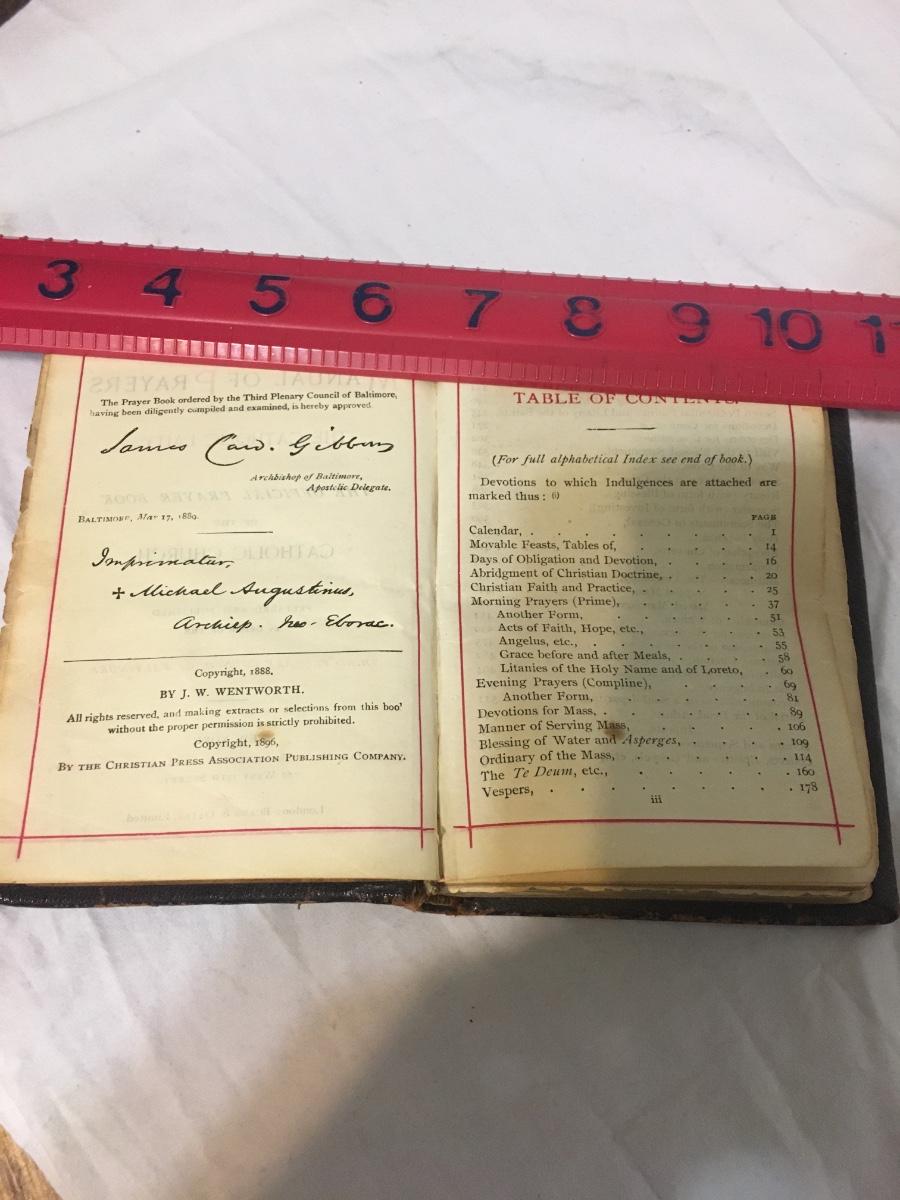 3 4 5 6 7 8 9 10 11
MANUAL OF PRAYERS
The Prayer Book ordered by the Third Plenary Council of Baltimore,
having been diligently compiled and examined, is hereby approved.
James Card. Gibbons
Archbishop of Baltimore,
Apostolic Delegate.
BALTIMORE, Mar 17, 1889.
Imprimatur,
✝ Michael Augustinus,
Archiep. Neo-Eborac.
Copyright, 1888.
BY J. W. WENTWORTH.
All rights reserved, and making extracts or selections from this boo'
without the proper permission is strictly prohibited.
Copyright, 1896,
BY THE CHRISTIAN PRESS ASSOCIATION PUBLISHING COMPANY.
TABLE OF CONTENTS.
(For full alphabetical Index see end of book.)
Devotions to which Indulgences are attached are
marked thus: (i)
PAGE
Calendar, . . . . . . . . 1
Movable Feasts, Tables of, . . . . . 14
Days of Obligation and Devotion, . . . . 16
Abridgment of Christian Doctrine, . . . . 20
Christian Faith and Practice, . . . . . 25
Morning Prayers (Prime), . . . . . 37
Another Form, . . . . . . 51
Acts of Faith, Hope, etc., . . . . 53
Angelus, etc., . . . . . . 55
Grace before and after Meals, . . . . 58
Litanies of the Holy Name and of Loreto, . . 60
Evening Prayers (Compline), . . . . 69
Another Form, . . . . . . 81
Devotions for Mass, . . . . . . 89
Manner of Serving Mass, . . . . . 106
Blessing of Water and Asperges, . . . . 109
Ordinary of the Mass, . . . . . 114
The Te Deum, etc., . . . . . . 160
Vespers, . . . . . . . . 178
iii